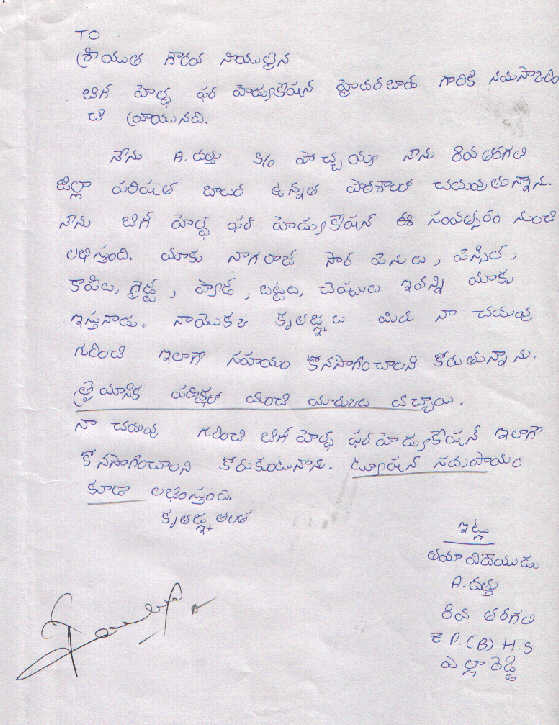 TO
శ్రీయుత గౌరవ నాయులైన
బిగ్ హెల్ప్ ఫర్ ఎడ్యుకేషన్ హైదరాబాదు గారికి నమస్కారం
చి వ్రాయునది.
నేను A. రాజు S/o పోచ్చయ్య నాను 8వ తరగతి
జిల్లా పరిషత్ బాలుర ఉన్నత పాఠశాలలో చదువుతున్నాను
నాను బిగ్ హెల్ప్ ఫర్ ఎడ్యుకేషన్ ఈ సంవత్సరం నుంచి
లభిస్తుంది. మాకు నాగరాజ్ సార్ పెనులు, పెన్సిల్,
కాపీలు, డ్రెస్స్, ప్యాడ్, బట్టలు, చెప్పులు ఇవన్ని మాకు
ఇస్తునాడు. నాయొక్క కృతజ్ఞలు మీరు నా చదువు
గురించి ఇలాగే సహాయం కోనసాగించాలని కోరుతున్నాను.
త్రైమాసిక పరీక్షలో మంచి మార్కులు వచ్చాయి.
నా చదువు గురించి బిగ్ హెల్ప్ ఫర్ ఎడ్యుకేషన్ ఇలాగే
కోనసాగించాలని కోరుకుంటునాను. ట్యూషన్ సదుపాయం
కూడా లభిస్తుంది.
కృతజ్ఞతలతో
ఇట్లు
తమ విదేయుడు
A. రాజు
8వ తరగతి
Z.P.(B) H.S
ఎల్లారెడ్డి